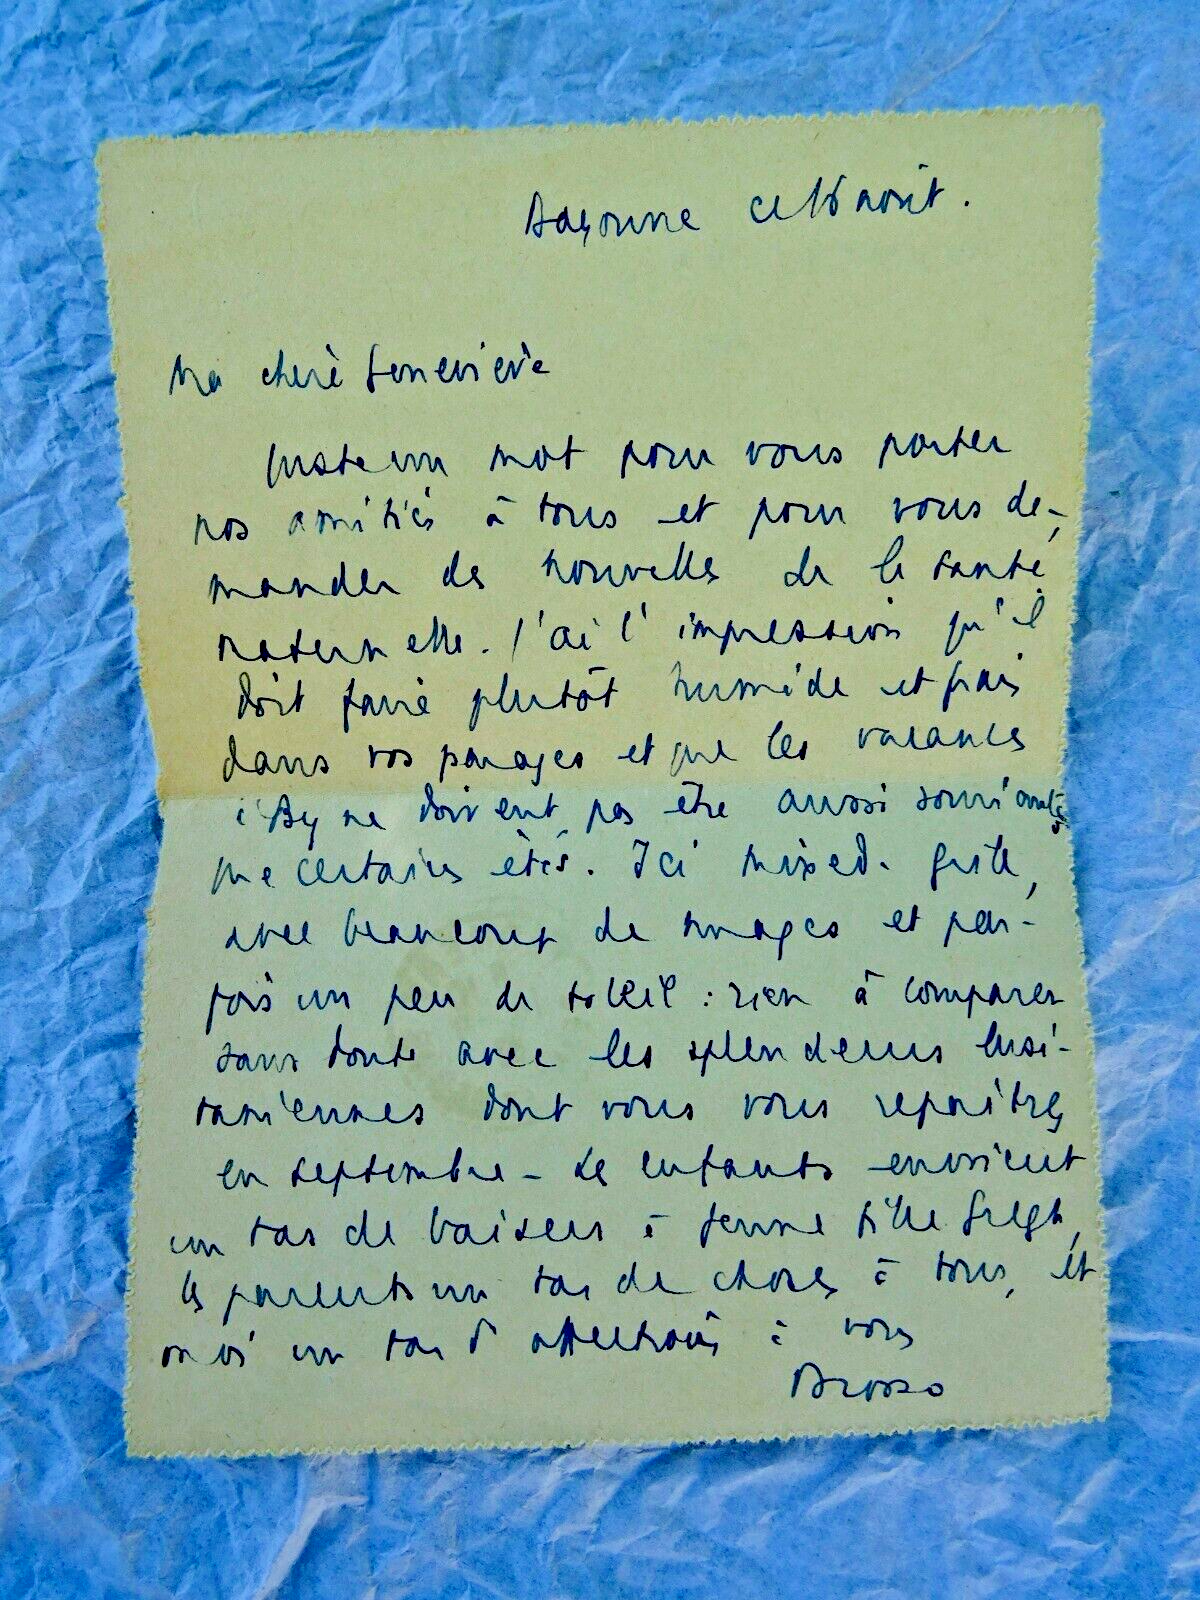 Bayonne ce 16 août.
Ma chère Geneviève
Juste un mot pour vous porter
nos amitiés à tous et pour vous de-
mander des nouvelles de la santé
maternelle. J'ai l'impression qu'il
doit faire plutôt humide et frais
dans vos parages et que les vacances
ne doivent pas être aussi souriantes
que certains étés. Ici mixed-grill,
avec beaucoup de nuages et par-
fois un peu de soleil : rien à comparer
sans doute avec les splendeurs lusi-
taniennes dont vous vous repaîtrez
en septembre - Les enfants envoient
un tas de baisers à jeune fille Gregh,
les parents un tas de choses à tous, et
moi un tas d'affections à vous